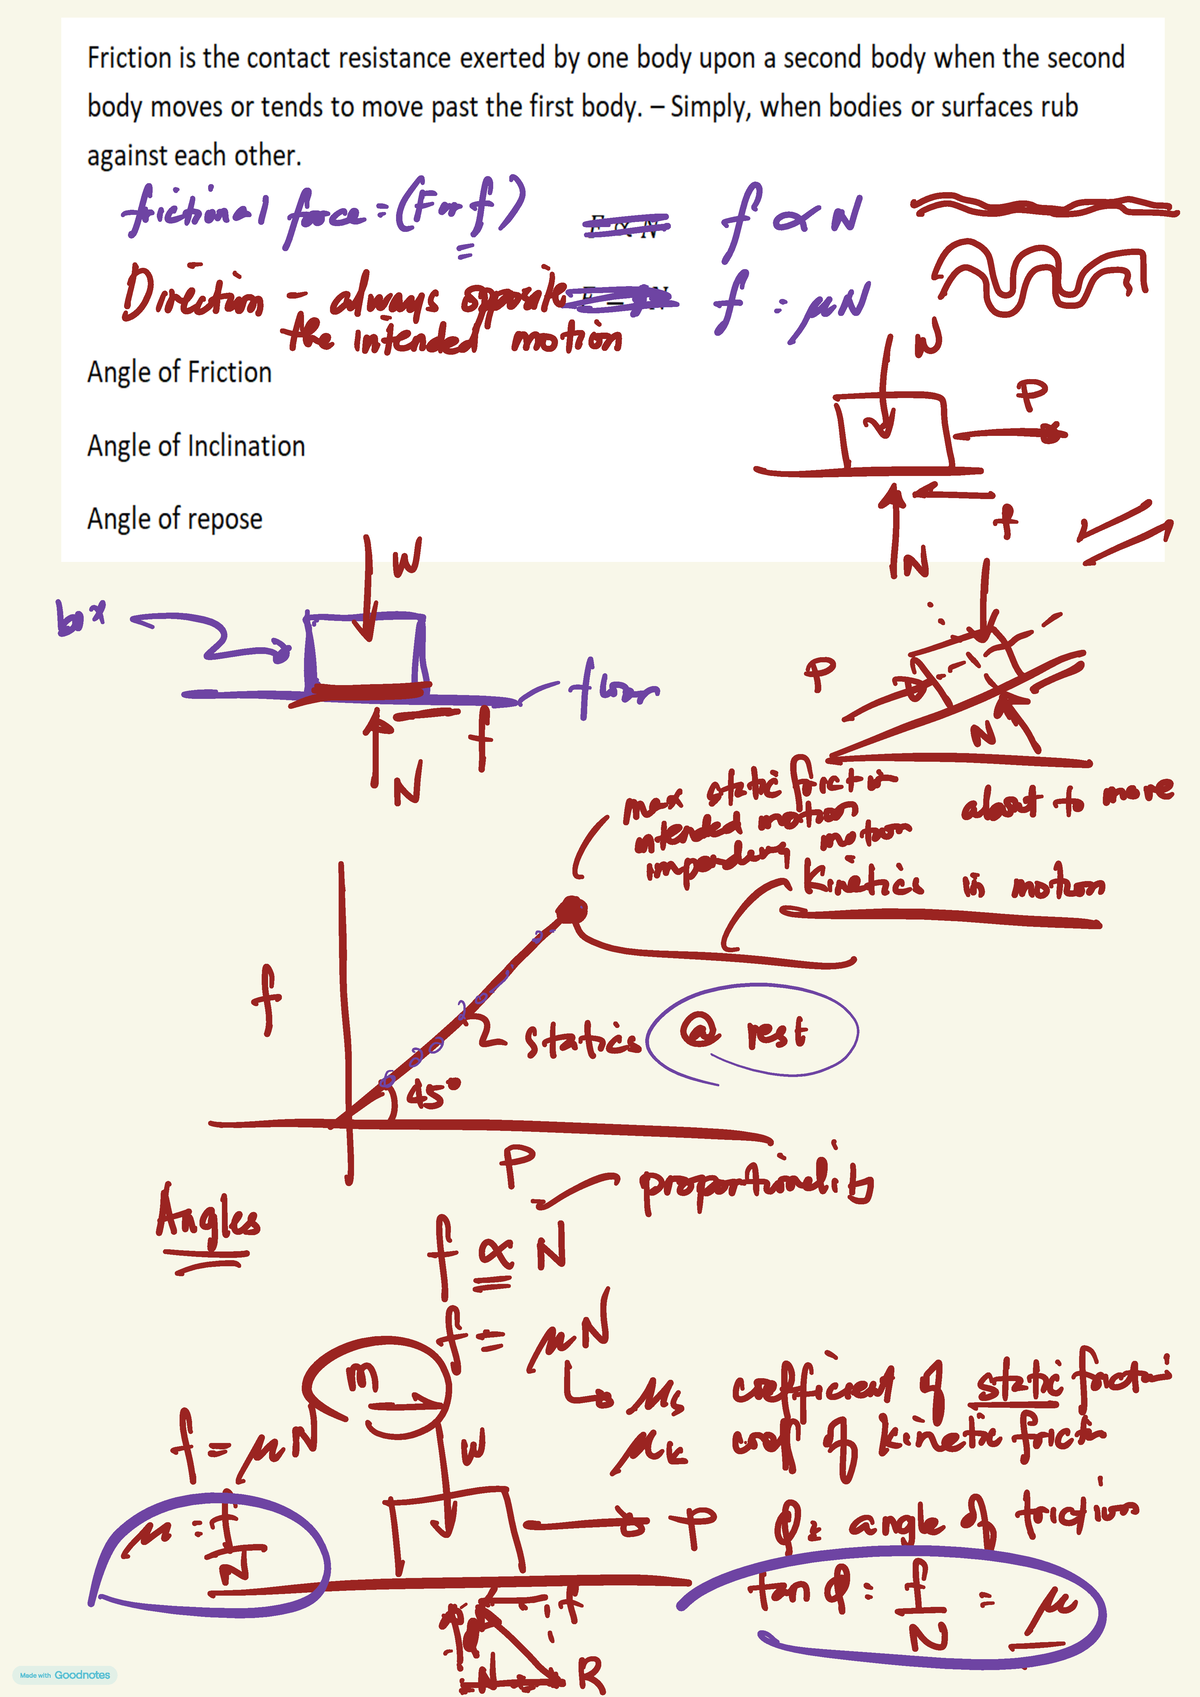 Friction is the contact resistance exerted by one body upon a second body when the second
body moves or tends to move past the first body. – Simply, when bodies or surfaces rub
against each other.
frictional force = (F or f)
f ∝ N
Direction - always opposite
the intended motion
f = μN
Angle of Friction
Angle of Inclination
Angle of repose
W
P
f
N
box
W
floor
f
N
P
N
max static friction
intended motion
impending motion
about to move
Kinetics in motion
f
statics @ rest
45°
P
proportionality
Angles
f ∝ N
f = μN
μs coefficient of static friction
μk coef of kinetic friction
m
f = μN
W
P
μ = f/N
φ = angle of friction
tan φ = f/N = μ
f
N
R
Made with Goodnotes